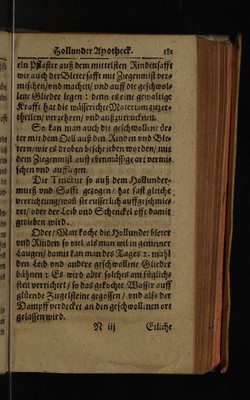 Hollunder Apotheck. 181
ein Pflaster auß dem mittelsten Rindensafft
wie auch der Bleter safft mit Ziegenmist ver-
mischen / und machen / und auff die geschwol-
lene Glieder legen: denn es eine gewaltige
Krafft hat die wässerichte Materiam zuzer-
theilen / verzehren / und außzutrucknen.
So kan man auch die geschwollene ör-
ter mit dem Oell auß den Rinden und Ble-
tern / wie es droben beschrieben worden / mit
dem Ziegenmist auff ebenmässige art vermis-
schen und aufflegen.
Die Tinctur so auß dem Hollunder-
mueß und Safft gezogen / hat fast gleiche
verrichtung / wañ sie eusserlich auffgeschmie-
ret / oder der Leib und Schenckel offt damit
gerieben wird.
Oder / Man koche die Hollunder bleter
und Rinden so viel als man wil in gemeiner
Laugen / damit kan man des Tages 2. mahl
den Leib und andere geschwollene Glieder
bähnen: Es wird aber solches am füglich-
sten verrichtet / so das gekochte Wasser auff
glüende Ziegelsteine gegossen / und also der
Dampff verdeckt an den geschwollenen ort
gelassen wird.
N iij Etliche